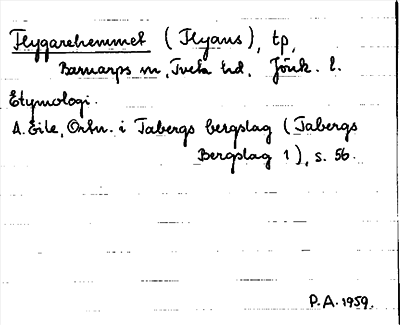 Flygarehemmet (Flyans), tp,
Barnarps sn, Tveta hd, Jönk. l.
Etymologi.
A. Eile, Ortn. i Tabergs bergslag (Tabergs
Bergslag 1), s. 56.
P.A. 1959.